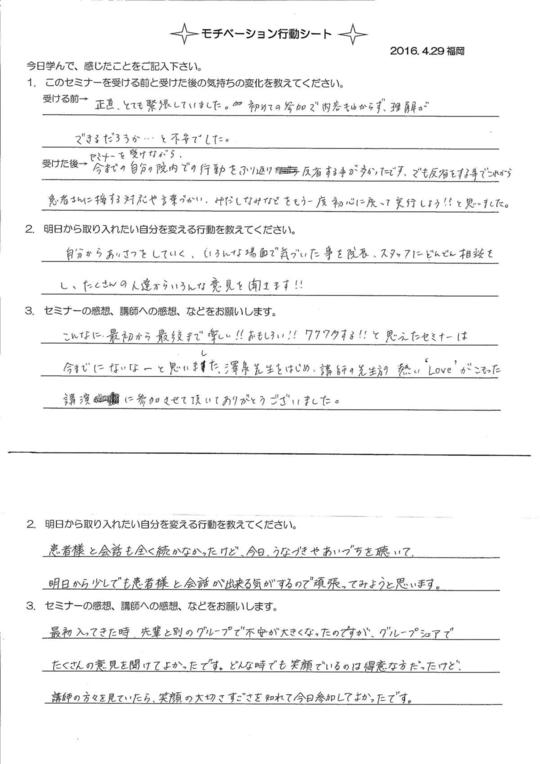 モチベーション行動シート
2016.4.29福岡
今日学んで、感じたことをご記入下さい。
1. このセミナーを受ける前と受けた後の気持ちの変化を教えてください。
受ける前→ 正直、とても緊張していました。初めての参加で内容もわからず、理解が
できるだろうか…と不安でした。
セミナーを受けながら、
受けた後→ 今までの自分の院内での行動をふり返り 反省する事が多かったです。でも反省をする事でこれから
患者さんに接する対応や言葉づかい、みだしなみなどをもう一度初心に戻って実行しよう!!と思いました。
2. 明日から取り入れたい自分を変える行動を教えてください。
自分からあいさつをしていく、いろんな場面で気づいた事を院長、スタッフにどんどん相談を
し、たくさんの人達からいろんな意見を聞きます!!
3. セミナーの感想、講師への感想、などをお願いします。
こんなに、最初から最後まで楽しい!!おもしろい!!ワクワクする!!と思えたセミナーは
今までにないなーと思いました、澤泉先生をはじめ、講師の先生方の熱い"Love"がこもった
講演に参加させて頂いてありがとうございました。
2. 明日から取り入れたい自分を変える行動を教えてください。
患者様と会話も全く続かなかったけど、今日、うなづきやあいづちを聴いて、
明日から少しでも患者様と会話が出来る気がするので頑張ってみようと思います。
3. セミナーの感想、講師への感想、などをお願いします。
最初入ってきた時、先輩と別のグループで不安が大きくなったのですが、グループシェアで
たくさんの意見を聞けてよかったです。どんな時でも笑顔でいるのは得意な方だったけど、
講師の方々を見ていたら、笑顔の大切さすごさを知れて今日参加してよかったです。